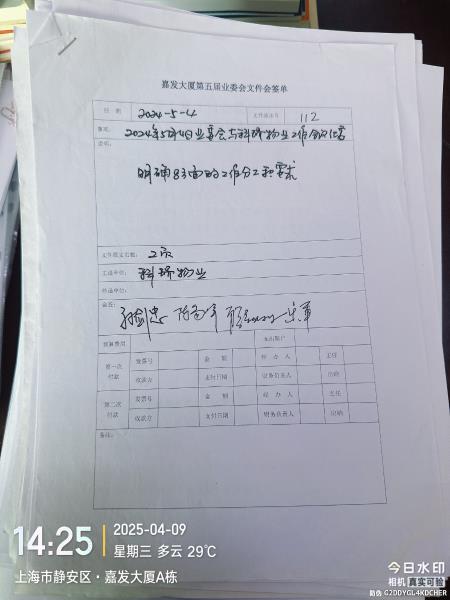 嘉发大厦第五届业委会文件会签单
日期 2024-5-4 文件流水号 112
事项: 2024年5月4日业委会与科瑞物业工作会议纪要
说明:
明确8方面的工作分工和要求
文件原文页数: 2页
主送单位: 科瑞物业
抄送单位:
会签:
预算费用 支出账户
第一次付款 发票号 金额 经办人 主任
收款方 支付日期 财务负责人 出纳
第二次付款 发票号 金额 经办人 主任
收款方 支付日期 财务负责人 出纳
备注:
14:25 2025-04-09
星期三 多云 29℃
上海市静安区·嘉发大厦A栋
今日水印
相机 真实可验
防伪 G2DDYGL4KDCHER